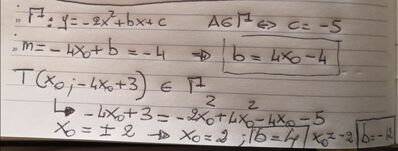 • Γ: y = -2x²+bx+c A∈Γ ⇔ c = -5
• m = -4x₀+b = -4 ⇒ b = 4x₀-4
T(x₀; -4x₀+3) ∈ Γ
↳ -4x₀+3 = -2x₀²+4x₀²-4x₀-5
x₀ = ± 2 → x₀ = 2; b=4 x₀=-2 b=-12